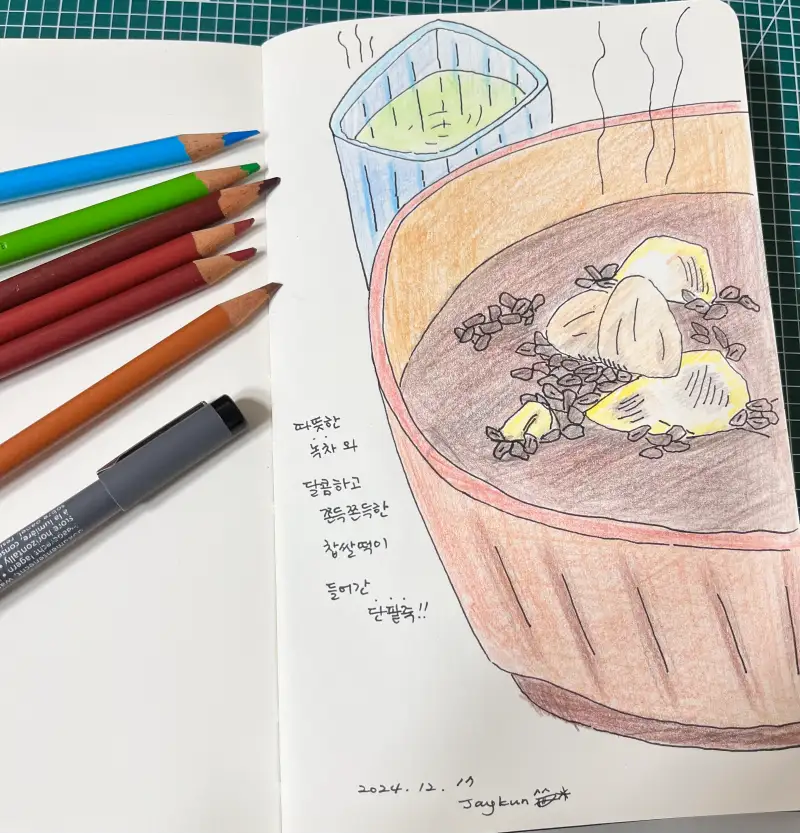 따뜻한
녹차와
달콤하고
쫀득쫀득한
찹쌀떡이
들어간
단팥죽!!
2024. 12. 17
Jaykun
store horizontally
à la lumière, cons